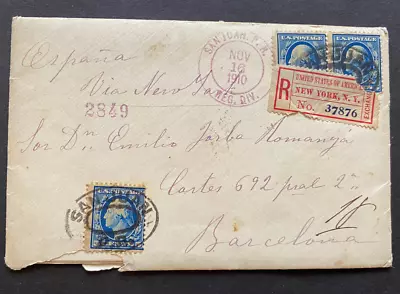 España
Via New
SAN JUAN, P. R.
NOV
16
1910
REG. DIV.
U.S. POSTAGE
U.S. POSTAGE
R
UNITED STATES OF AMERICA
NEW YORK, N. Y.
No. 37876
EXCHANGE
2849
Sor Dn Emilio Jorba Romanya
Cortes 692 pral 2ª
Barcelona
SAN JUAN